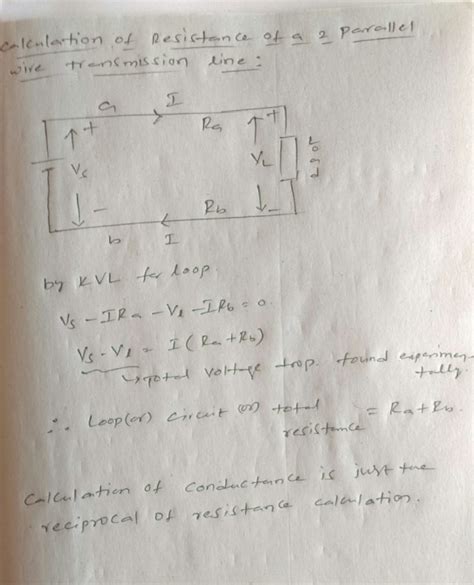 Calculation of Resistance of a 2 parallel
wire transmission line:
a I
+ Ra +
Vs VL Load
- Rb -
b I
by KVL for loop.
Vs - IRa - Vl - IRb = 0.
Vs - Vl = I (Ra + Rb)
↳ total voltage drop. found experimen-
tally.
∴ Loop (or) circuit (or) total = Ra + Rb.
resistance
Calculation of conductance is just the
reciprocal of resistance calculation.